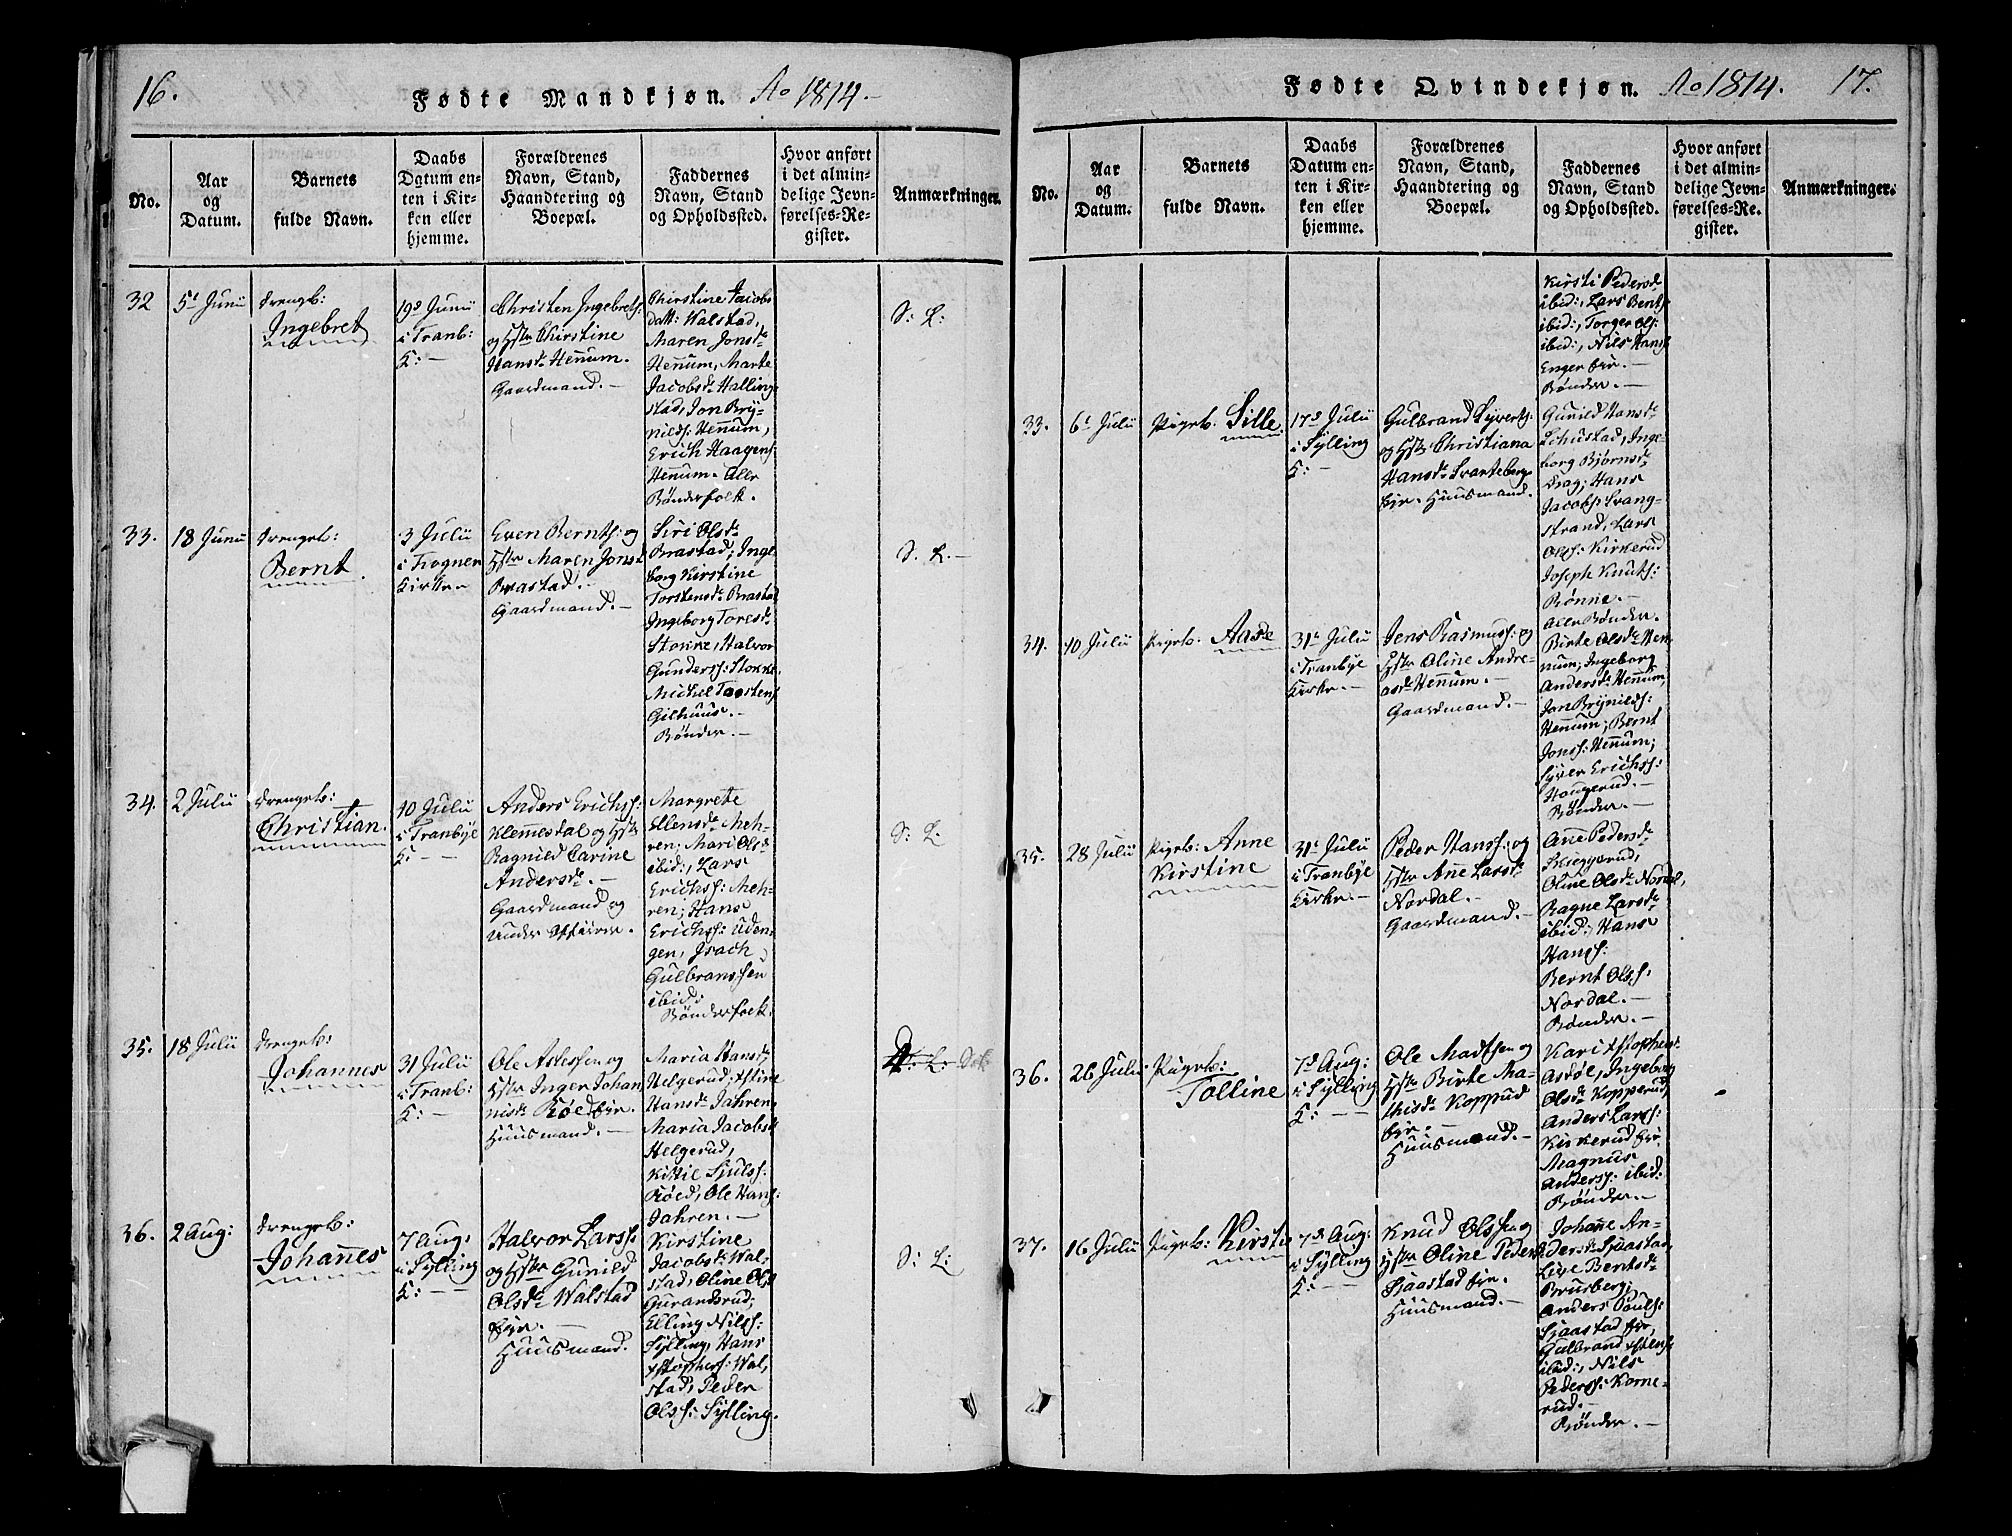 16.
Fødte Mandkjøn. Ao 1814.-
No.
Aar
og
Datum.
Barnets
fulde Navn.
Daabs
Datum en-
ten i Kir-
ken eller
hjemme.
Forældrenes
Navn, Stand,
Haandtering og
Boepæl.
Faddernes
Navn, Stand
og Opholdssted.
Hvor anført
i det almin-
delige Jevn-
førelses-Re-
gister.
Anmærkninger.
32
5t Junii
Drengeb:
Ingebret
19d Junii
i Tranb:
K: —
Christen Ingebrets:
og Hstr Chirstine
Hansd: Hennum.
Gaardmand. —
Chirstine Jacobs
datt: Walstad,
Maren Jonsd:
Hennum, Marte
Jacobsd: Halling-
stad, Jon Bry-
nilds: Hennum,
Erich Haagens:
Hennum. Alle
Bønderfolk.
S: L:
33.
18 Junii
Drengeb:
Bernt.
3 Julii
i Frogner
Kirke
Even Bernts: og
Hstr Maren Jonsd
Brastad. —
Gaardmand. —
Siri Olsd:
Brastad; Inge-
borg Kirstine
Torstensd: Brastad
Ingeborg Toresd:
Stokke, Halvor
Gunders: Stokke
Michel Torstens:
Gilhuus. —
Bønder. —
S. L. —
34.
2 Julii
Drengeb:
Christian.
10 Julii
i Tranbye
K: — —
Anders Erichss:
Klemmesdal og Hstr
Ragnild Carine
Andersd: —
Gaardmand og
Under Officeer.
Margrete
Ellensd: Meh-
ren; Mari Olsd:
ibid:, Lars
Erichss: Meh-
ren; Hans
Erichss: Uden-
gen, Isach
Gulbranssen
ibid:
Bønderfolk.
S: L:
35.
18 Julii
Drengeb:
Johannes
31 Julii
i Tranb:
K: —
Ole Aslessen og
Hstr Inger Johan
nisd: Røed Eje.
Huusmand. —
Maria Hansd:
Helgerud; Xstine
Hansd: Jahren.
Maria Jacobsd
Helgerud,
Kittil Sjulss:
Røed, Ole Hans:
Jahren. —
L:
36.
2 Aug:
Drengeb:
Johannes
7 Aug:
i Sylling
K: — —
Halvor Larss:
og Hstr Gunild
Olsd: Walstad
Eje. —
Huusmand.
Kirstine
Jacobsd: Wal-
stad, Oline Olsd
Gurandsrud;
Elling Nils:
Sylling, Hans
Xstophers: Wal,
stad, Peder
Olss: Sylling.
S: L:
Fødte Qvindekjøn. Ao 1814. 17.
No.
Aar
og
Datum.
Barnets
fulde Navn.
Daabs
Datum en-
ten i Kir-
ken eller
hjemme.
Forældrenes
Navn, Stand,
Haandtering og
Boepæl.
Faddernes
Navn, Stand
og Opholdssted.
Hvor anført
i det almin-
delige Jevn-
førelses-Re-
gister.
Anmærkninger.
Kirsti Pedersd:
ibid:, Lars Bents:
ibid:, Torger Ols:
ibid:, Nils Hans:
Enger Eje. —
Bønder. —
33.
6t Julii
Pigeb. Sille.
17d Julii
i Sylling
K: —
Gulbrand Syverts:
og Hstr Christiana
Hansd: Svarteberg
Eje. Huusmand.
Gunild Hansd:
Schustad, Inge-
borg Bjørnsd:
Drag; Hans
Jacobs: Svang-
strand, Lars
Olss: Kirkerud
Joseph Knuts:
Rønne. —
Alle Bønder.
34.
10 Julii
Pigeb. Aase
31t Julii
i Tranbye
Kirke. —
Jens Rasmuss: og
Hstr Oline Andre-
asd: Hennum. —
Gaardmand. —
Birte Olsd: Hen-
num; Ingeborg
Andersd: Hennum,
Jan Brynilds:
Hennum; Bernt
Jonss: Hennum;
Syver Erichss:
Haugerud. —
Bønder. —
35.
28 Julii
Pigeb: Anne
Kirstine
31t Julii
i Tranbye
Kirke. —
Peder Hanss: og
Hstr Ane Larsd:
Nordal. —
Gaardmand. —
Anne Pedersd:
Skieggerud,
Oline Olsd: Nordal,
Ragne Larsd:
ibid:, Hans
Hanss:
Bernt Olss:
Nordal. —
Bønder. —
36.
26 Julii
Pigeb:
Tolline
7d Aug:
i Sylling
K: — —
Ole Madtsen og
Hstr Birte Ma-
thisd: Koppud
Eje. —
Huusmand. —
Kari Xstophersd:
Asdøl, Ingeborg
Olsd: Kopperud,
Anders Larss:
Kirkerud Eje,
Magnus
Anderss: ibid:
Bønder. —
37.
16 Julii
Pigeb: Kirsti
7d Aug:
i Sylling
K: —
Knud Olssen og
Hstr Oline Pedersd:
Sjaastad Eje.
Huusmand. —
Johanne An-
dersd: Sjaastad,
Live Bentsd:
Bruberg;
Anders Pouls:
Sjaastad Eje,
Gulbrand Xstens:
ibid:, Nils
Pederss: Korne-
rud. —
Bønder. —